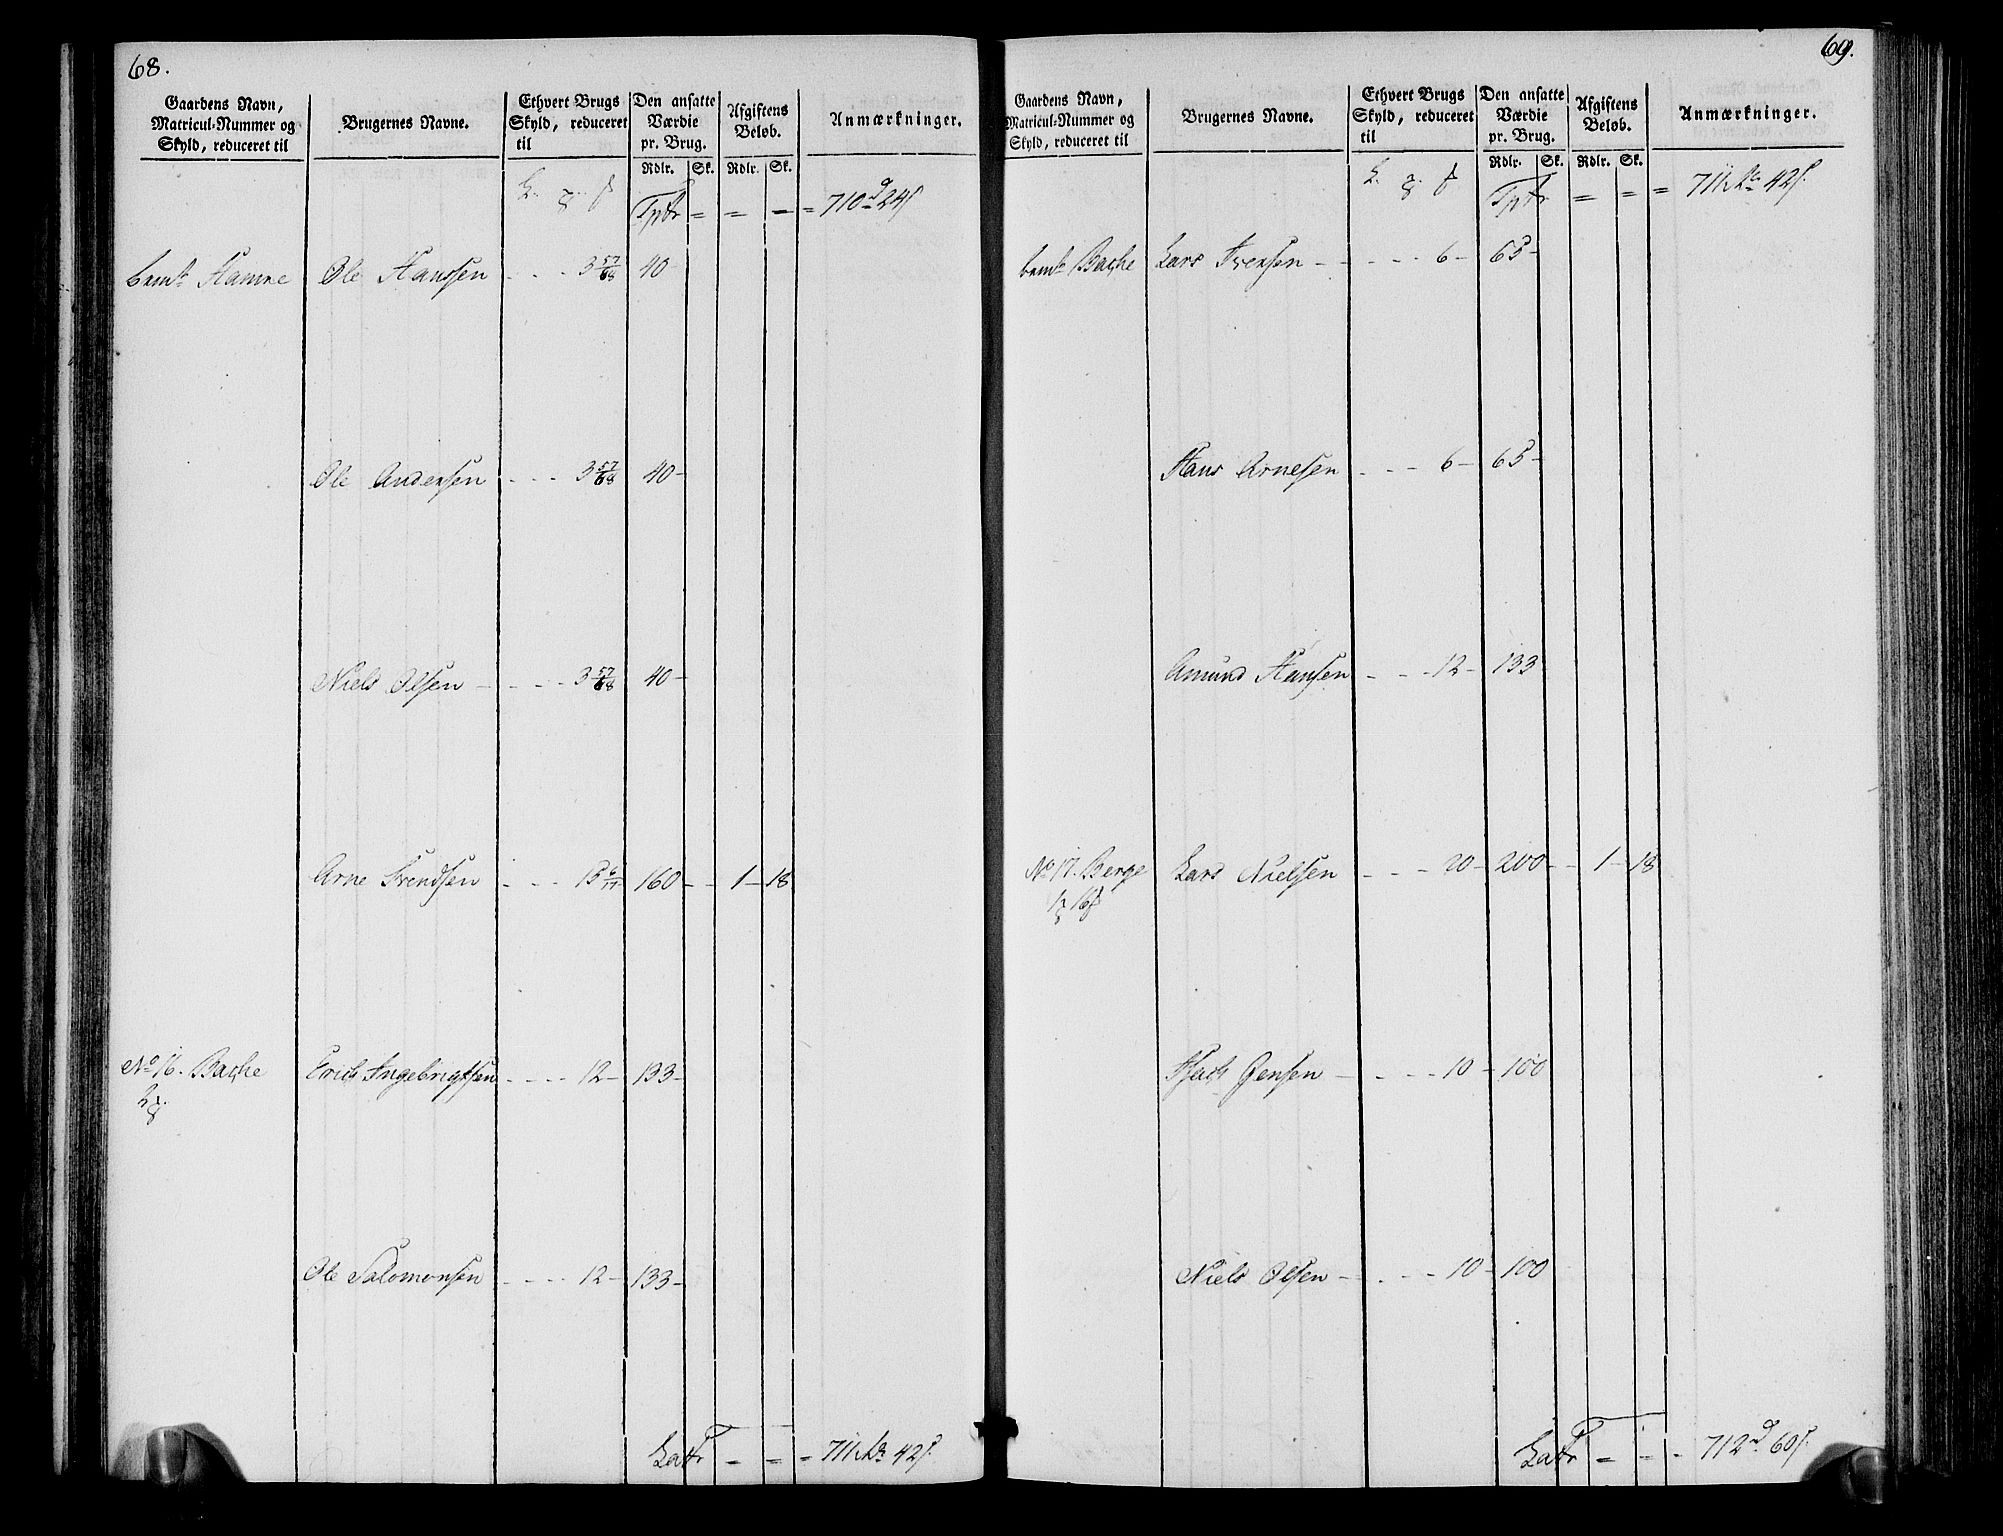 68.
Gaardens Navn, Matricul-Nummer og Skyld, reduceret til
Brugernes Navne.
Ethvert Brugs Skyld, reduceret til
Den ansatte Værdie pr. Brug.
Afgiftens Beløb.
Anmærkninger.
Rdlr. Sk. Rdlr. Sk.
Tptr = = - = 710 d 24 s
Hamre Ole Hanssen - - - 3 57/68 40 -
Ole Andersen - - - 3 57/68 40 -
Niels Olsen - - - - 3 57/68 40 -
Arne Svendsen - - - 15 6/17 160 - - 1 - 18
No 16. Bache Erich Ingebrigtsen - - - - 12 - 133 -
Ole Salomonsen - - - - 12 - 133 -
Latr = = = 711 42 s.
69.
Gaardens Navn, Matricul-Nummer og Skyld, reduceret til
Brugernes Navne.
Ethvert Brugs Skyld, reduceret til
Den ansatte Værdie pr. Brug.
Afgiftens Beløb.
Anmærkninger.
Rdlr. Sk. Rdlr. Sk.
Tptr = = = 711 42 s.
Bache Lars Iversen - - - - - 6 - 65 -
Hans Arnesen - - - 6 - 65 -
Amund Hansen - - - 12 - 133
No 17. Berge Lars Nielsen - - - 20 - 200 - - 1 - 18
Jensen - - - - 10 - 100
Niels Olsen - - - - 10 - 100
Latr = - - 712 d 60 s.